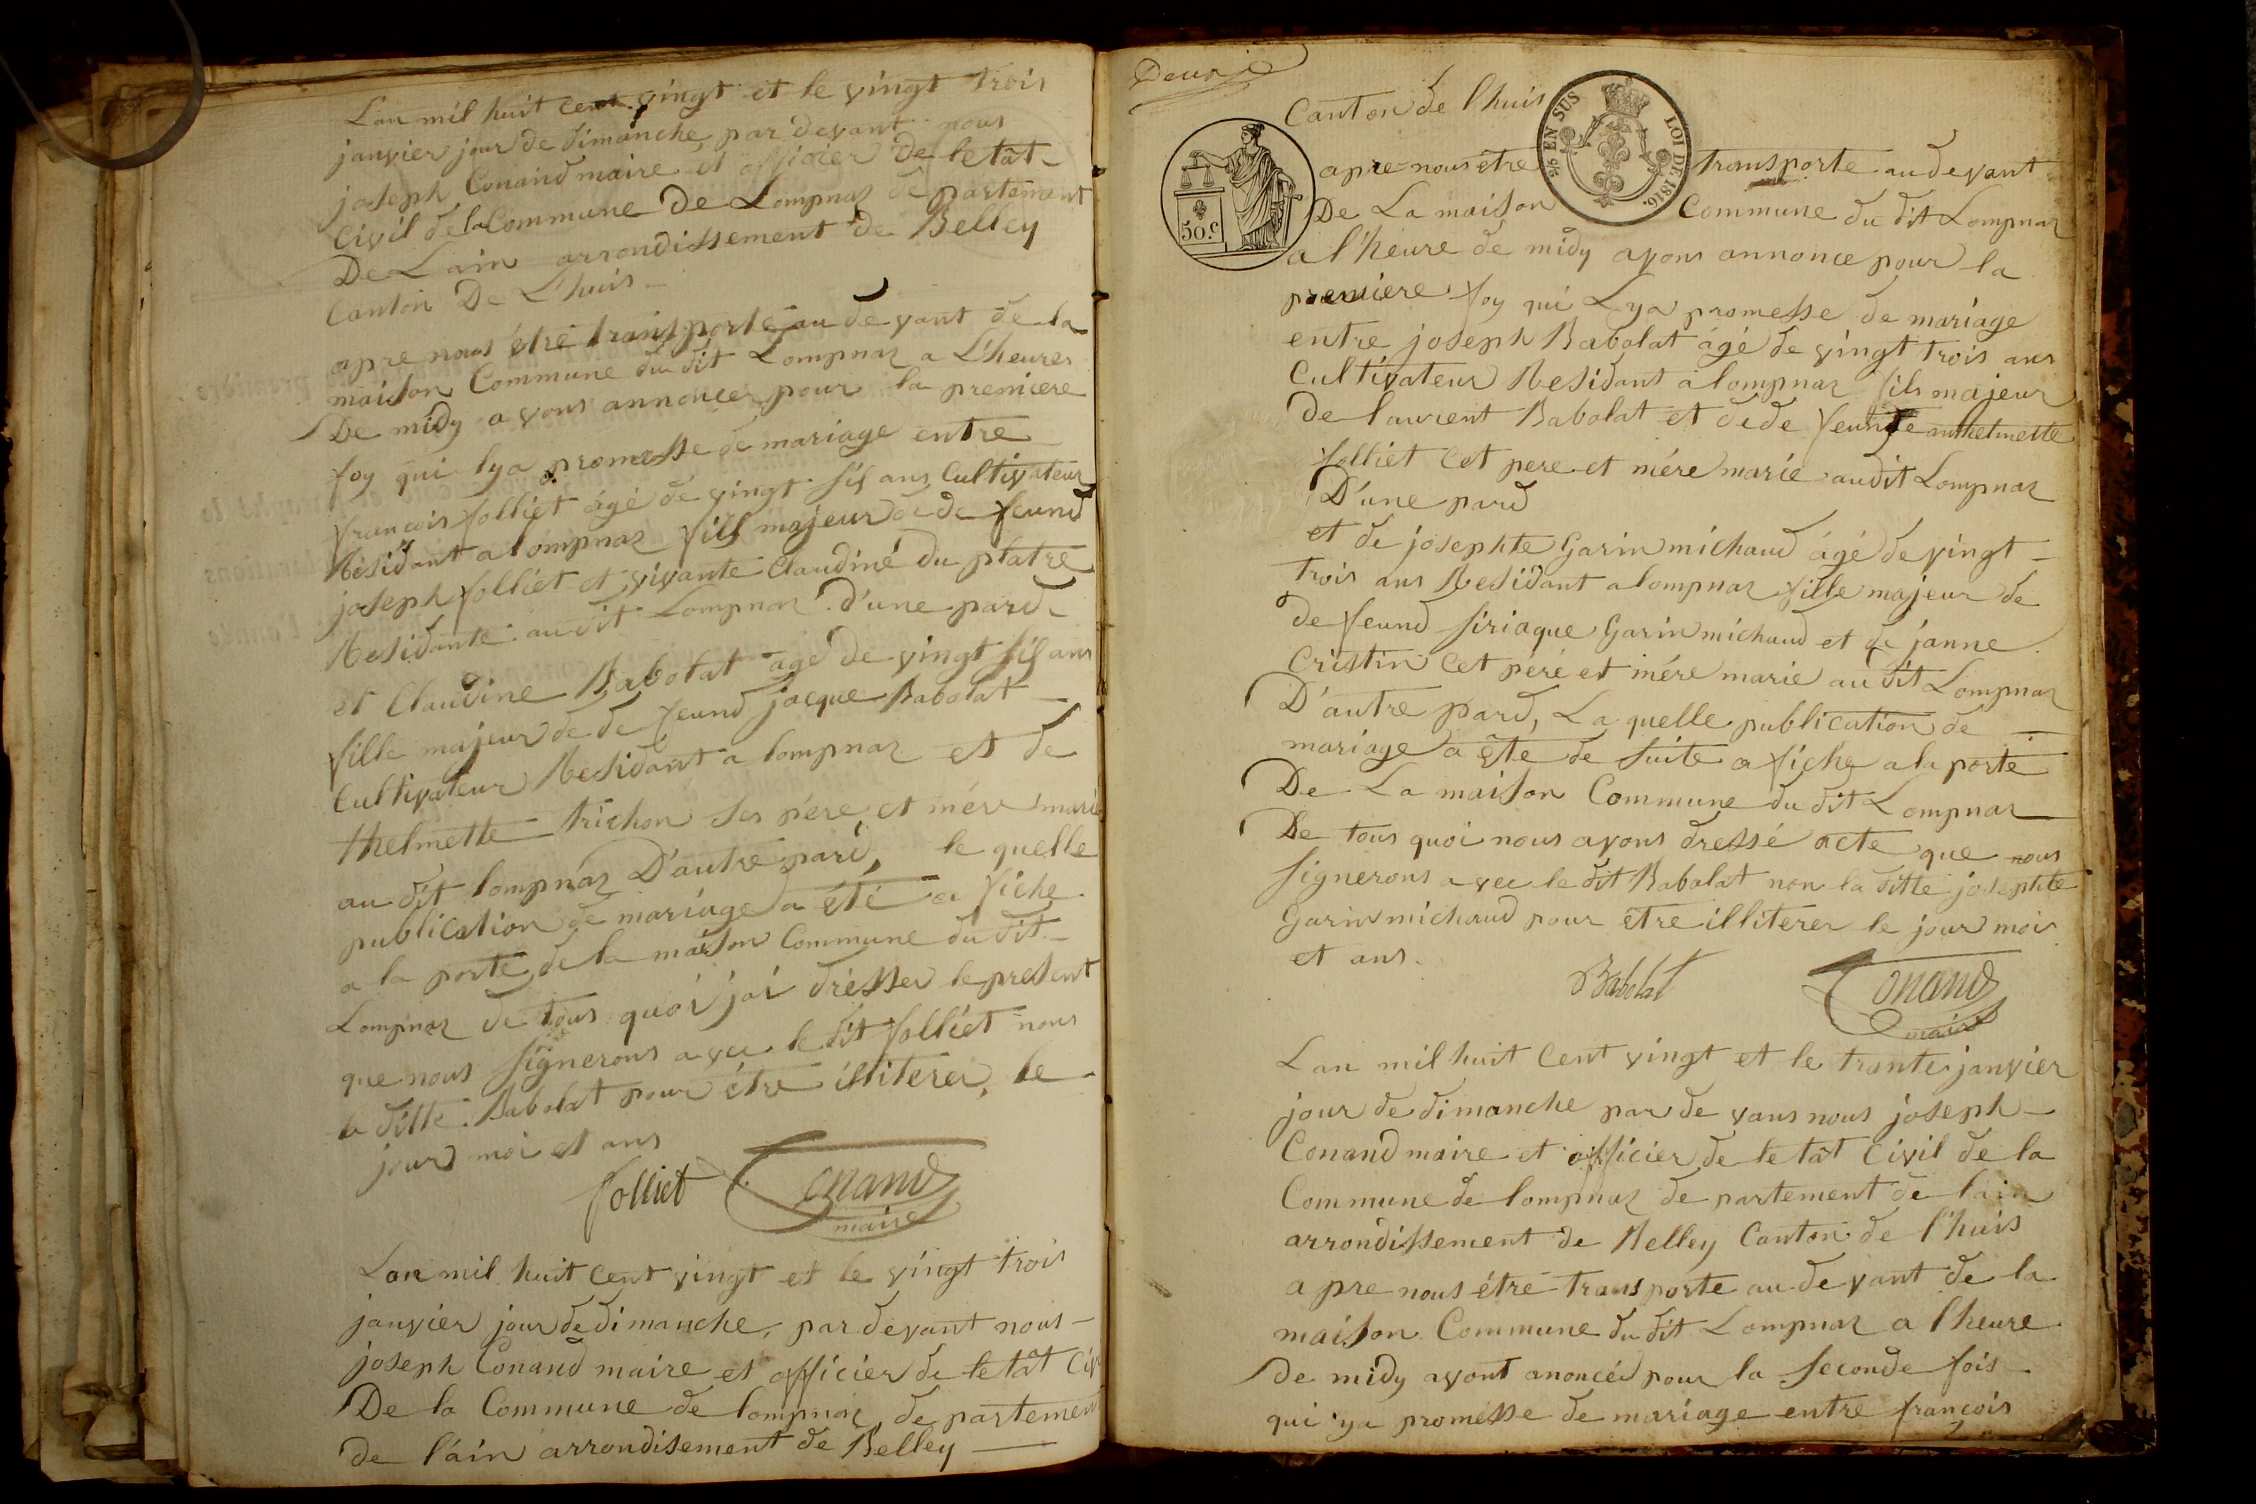 Lan mil huit cent vingt et le vingt trois
janvier jour de dimanche par devant nous
joseph Conand maire et officier de letât
Civil de la Commune De Lompnaz de partement
De Lain arrondissement de Belley
Canton De L'huis
apre nous étre transporté au devant de la
maison Commune du dit Lompnaz a L'heures
De midy avons annoncer pour la premiere
foy qui lya promesse de mariage entre
francois folliet ágé de vingt six ans Cultivateur
Résidant a lompnaz fils majeur de de feund
joseph folliet et vivante Claudine du platre
Residante audit Lompnaz d'une pard
et Claudine Babolat agé de vingt six ans
fille majeur de de feund jacque Babolat
Cultivateur Residant a lompnaz et de
thelmette trichon ses pére et mére marié
au dit lompnaz D'autre pard, le quelle
publication de mariage a été a fiche
a la porte de la maison Commune du dit
Lompnaz de tous quoi jai drésser le present
que nous signerons avec le dit folliet nous
la ditte Babolat pour étre illiterer, le
jour moi et ans
folliet Conand
maire
Lan mil huit cent vingt et le vingt trois
janvier jour de dimanche, par devant nous
joseph Conand maire et officier de letât Civ
De la Commune de lompnaz, de partement
de l'ain arrondisement de Belley
Deuxie
Canton de l'huis
2/5 EN SUS LOI DE 1816.
50.c
apre nous étre transporte au devant
De La maison Commune du dit Lompnaz
a l'heure de midy avons annonce pour la
premiere foy qui Lya promesse de mariage
entre joseph Babolat ágé de vingt trois ans
Cultivateur Residant a lompnaz fils majeur
de laurent Babolat et de de feunde anthelmette
folliet Cet pere et mére marie audit Lompnaz
D'une pard
et de josephte Garin michaud ágé de vingt
trois ans Residant a lompnaz fille majeur de
de feund siriaque Garin michaud et de janne
Cristin Cet pére et mére marié au dit Lompnaz
D'autre pard, La quelle publication de
mariage a été de suite a fiche a la porte
De La maison Commune du dit Lompnaz
De tous quoi nous avons dressé acte que nous
signerons avec le dit Babolat non la ditte josephte
Garin michaud pour etre illiterer le jour moi
et ans.
Babolat Conand
maire
Lan mil huit Cent vingt et le trante janvier
jour de dimanche par de vans nous joseph
Conand maire et officier de letât Civil de la
Commune de lompnaz de partement de lain
arrondissement de Belley Canton de l'huis
a pre nous étre transporte au devant de la
maison Commune du dit Lompnaz a l'heure
De midy avont anoncéd pour la seconde fois
qui ya promésse de mariage entre françois